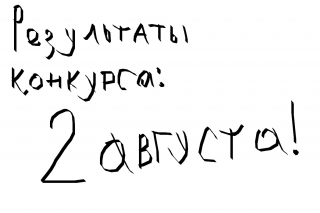 Результаты
конкурса:
2 августа!